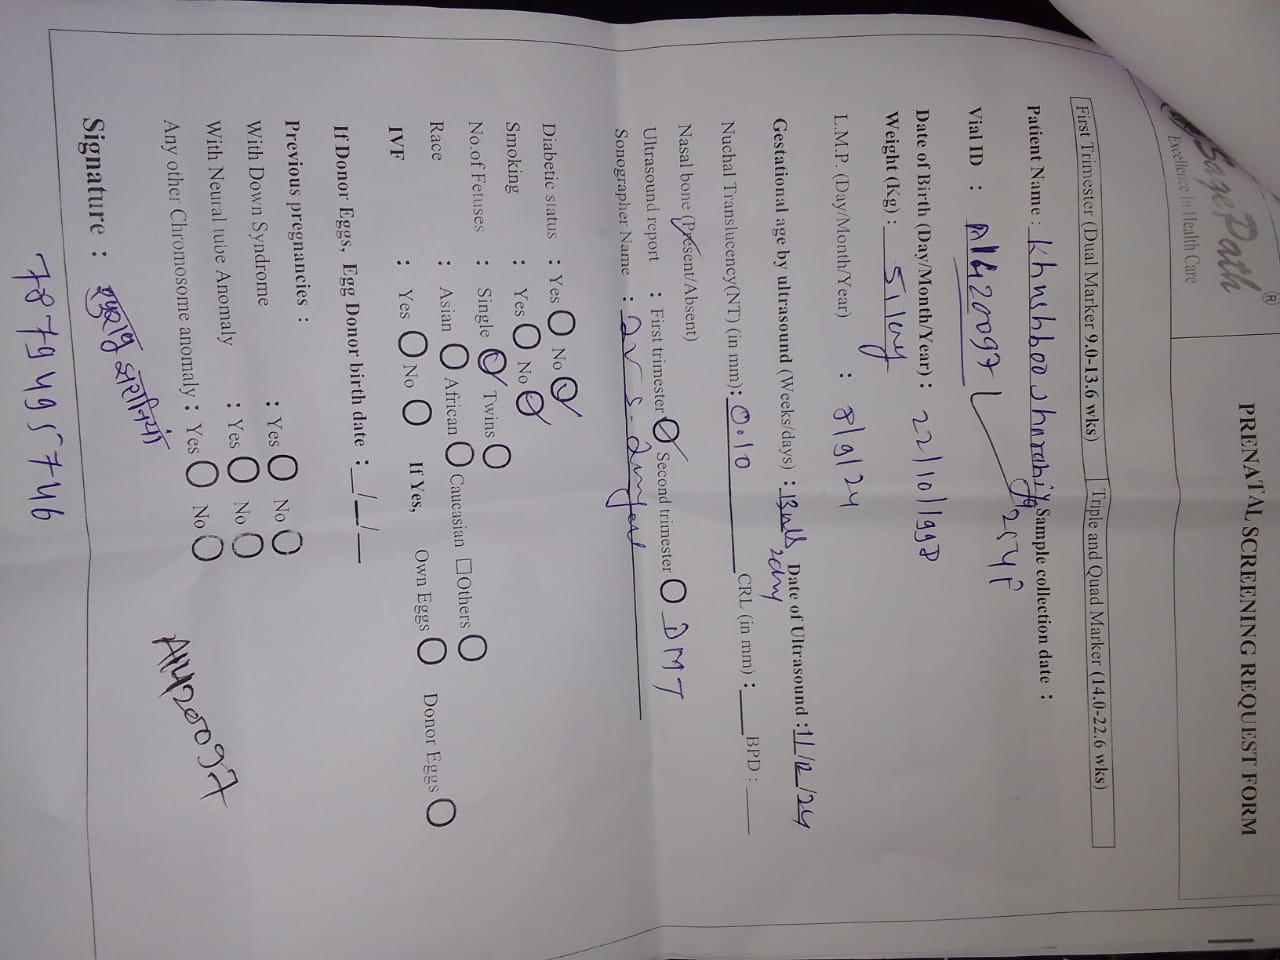 SagePath ®
Excellence In Health Care
PRENATAL SCREENING REQUEST FORM
First Trimester (Dual Marker 9.0-13.6 wks) Triple and Quad Marker (14.0-22.6 wks)
Patient Name : Khushboo Sample collection date :
Vial ID : A1420097
Date of Birth (Day/Month/Year) : 22/10/1998
Weight (Kg) : 51
L.M.P. (Day/Month/Year) : 8/9/24
Gestational age by ultrasound (Weeks/days) : 13 Date of Ultrasound : 11/12/24
Nuchal Translucency(NT) (in mm): 0.10 CRL (in mm) : BPD :
Nasal bone (Present/Absent)
Ultrasound report : First trimester Second trimester DMT
Sonographer Name :
Diabetic status : Yes No
Smoking : Yes No
No.of Fetuses : Single Twins
Race : Asian African Caucasian Others
IVF : Yes No If Yes, Own Eggs Donor Eggs
If Donor Eggs, Egg Donor birth date : __/__/__
Previous pregnancies :
With Down Syndrome : Yes No
With Neural tube Anomaly : Yes No
Any other Chromosome anomaly : Yes No
A1420097
Signature :
7879495746